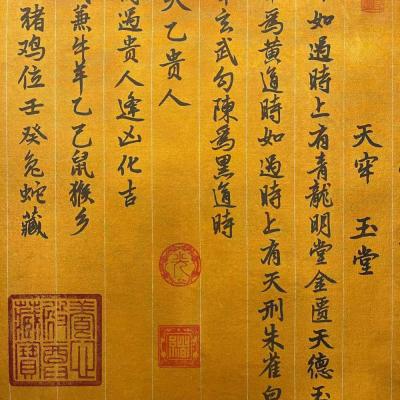 天牢 玉堂
如過時上有青龍明堂金匱天德玉
為黃道時如過時上有天刑朱雀白
玄武勾陳為黑道時
天乙貴人
過貴人逢凶化吉
兼牛羊乙己鼠猴乡
猪鸡位壬癸兔蛇藏